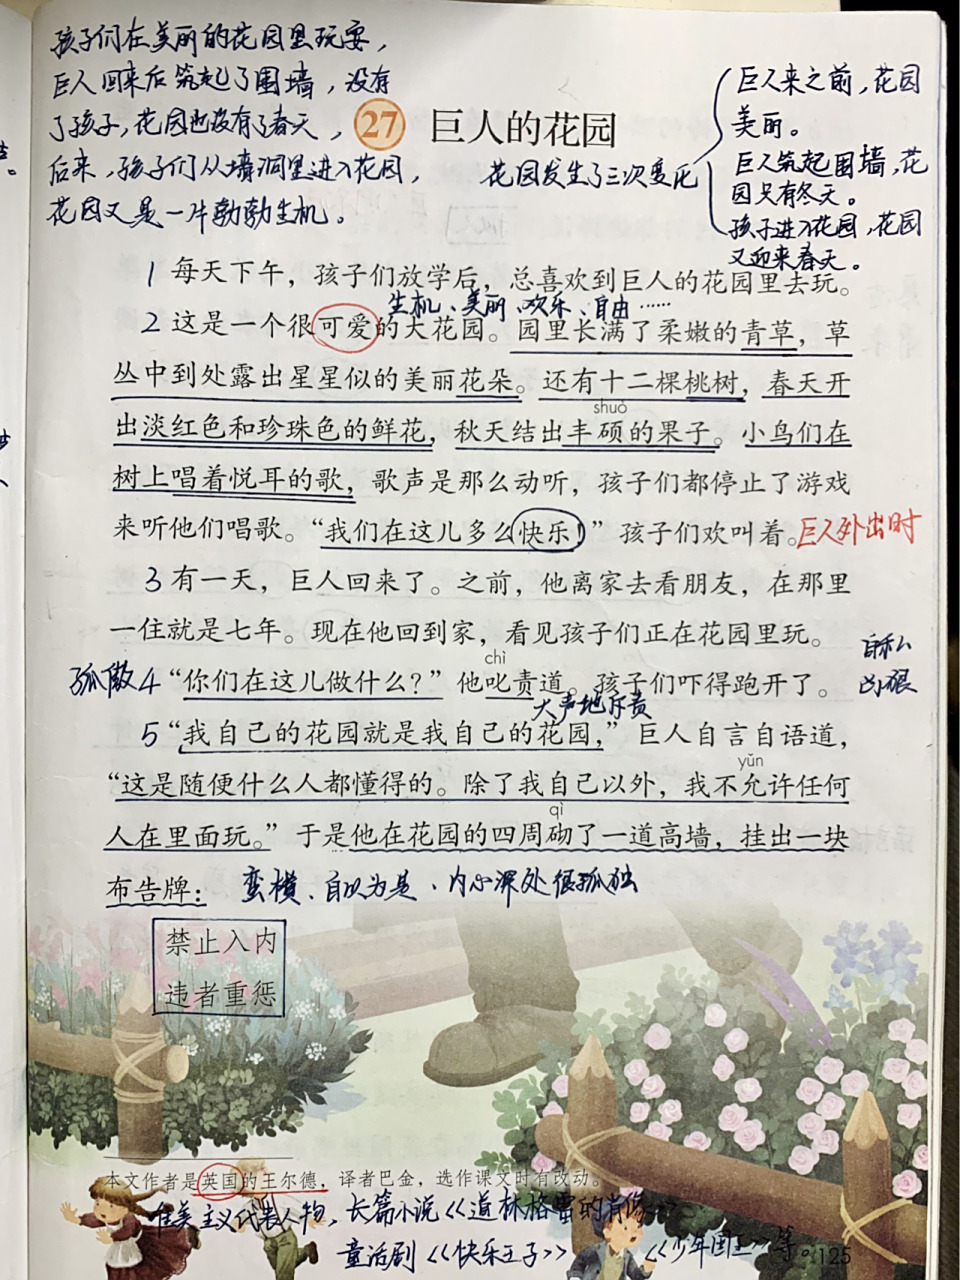 孩子们在美丽的花园里玩耍，
巨人回来后筑起了围墙，没有
了孩子，花园也没有了春天，
后来，孩子们从墙洞里进入花园，
花园又是一片勃勃生机。
27 巨人的花园
花园发生了三次变化
巨人来之前，花园
美丽。
巨人筑起围墙，花
园只有冬天。
孩子进入花园，花园
又迎来春天。
1 每天下午，孩子们放学后，总喜欢到巨人的花园里去玩。
生机、美丽、欢乐、自由……
2 这是一个很可爱的大花园。园里长满了柔嫩的青草，草
丛中到处露出星星似的美丽花朵。还有十二棵桃树，春天开
shuò
出淡红色和珍珠色的鲜花，秋天结出丰硕的果子。小鸟们在
树上唱着悦耳的歌，歌声是那么动听，孩子们都停止了游戏
来听他们唱歌。“我们在这儿多么快乐！”孩子们欢叫着。巨人外出时
3 有一天，巨人回来了。之前，他离家去看朋友，在那里
一住就是七年。现在他回到家，看见孩子们正在花园里玩。
自私
凶狠
chì
孤傲 4 “你们在这儿做什么？”他叱责道。孩子们吓得跑开了。
大声地斥责
5 “我自己的花园就是我自己的花园，”巨人自言自语道，
yǔn
“这是随便什么人都懂得的。除了我自己以外，我不允许任何
qì
人在里面玩。”于是他在花园的四周砌了一道高墙，挂出一块
布告牌：
蛮横、自以为是、内心深处很孤独
禁止入内
违者重惩
本文作者是英国的王尔德，译者巴金，选作课文时有改动。
唯美主义代表人物，长篇小说《道林格雷的肖像》
童话剧《快乐王子》《少年国王》等。
125